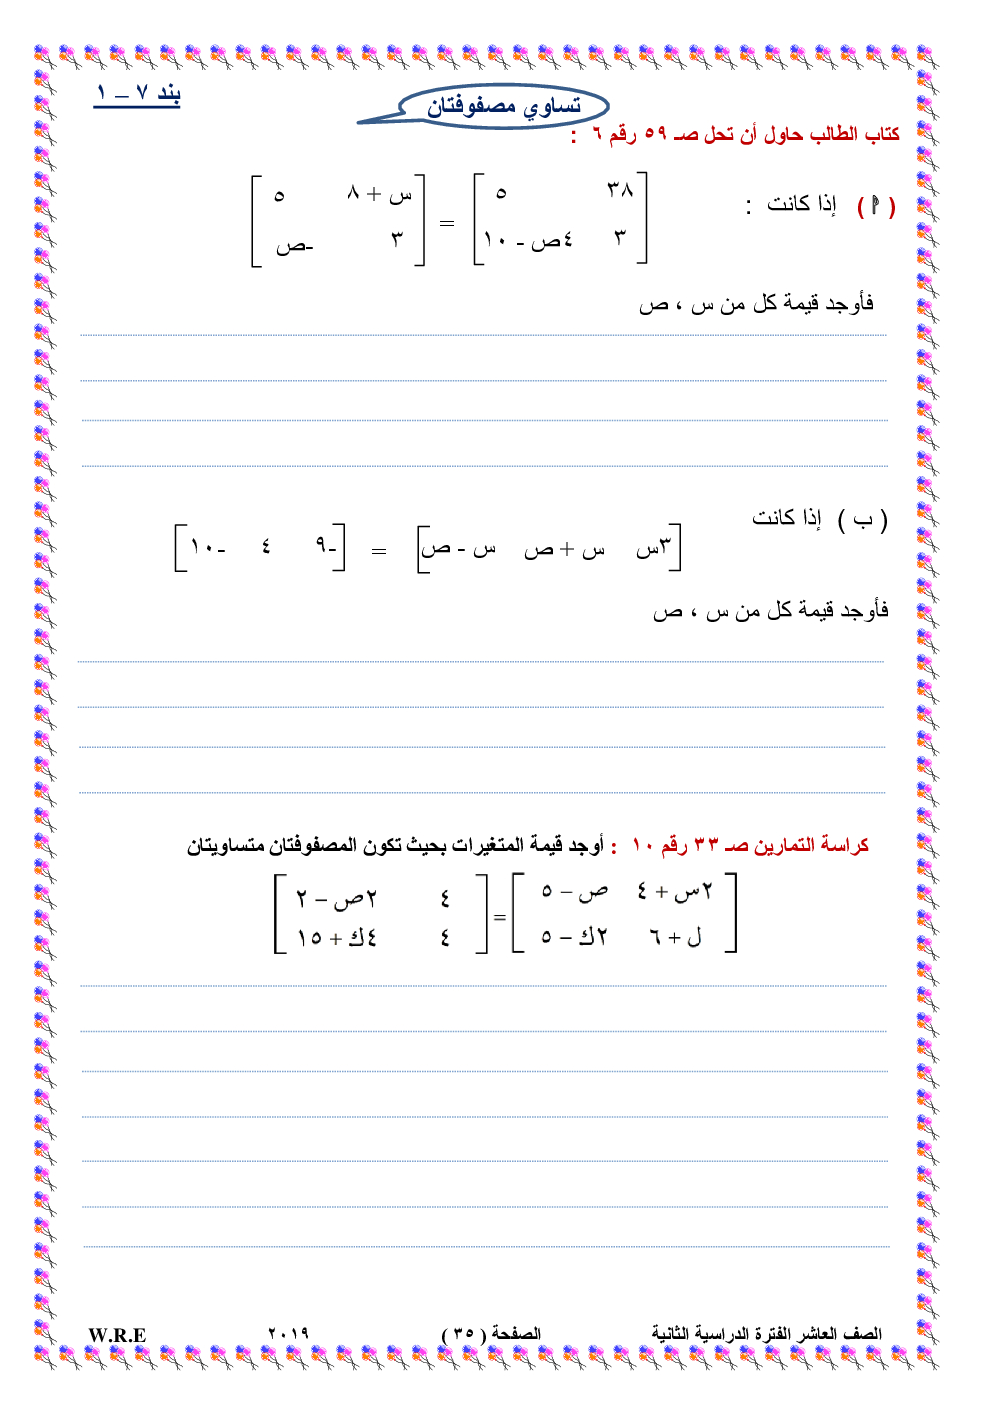 بند ٧ – ١
تساوي مصفوفتان
كتاب الطالب حاول أن تحل صـ ٥٩ رقم ٦ :
( أ ) إذا كانت :
٣٨ ٥ = س + ٨ ٥
٣ ٤ص - ١٠ ٣ -ص
فأوجد قيمة كل من س ، ص
( ب ) إذا كانت
٣س س + ص س - ص = -٩ ٤ -١٠
فأوجد قيمة كل من س ، ص
كراسة التمارين صـ ٣٣ رقم ١٠ : أوجد قيمة المتغيرات بحيث تكون المصفوفتان متساويتان
٢س + ٤ ص – ٥ = ٤ ٢ص – ٢
ل + ٦ ٢ك – ٥ ٤ ٤ك + ١٥
الصف العاشر الفترة الدراسية الثانية الصفحة ( ٣٥ ) ٢٠١٩ W.R.E